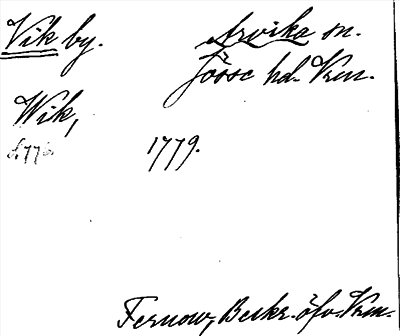 Vik by. Arvika sn.
Jösse hd. Vrm.
Wik,
s. 776. 1779.
Fernow, Beskr. öfv. Vrm.